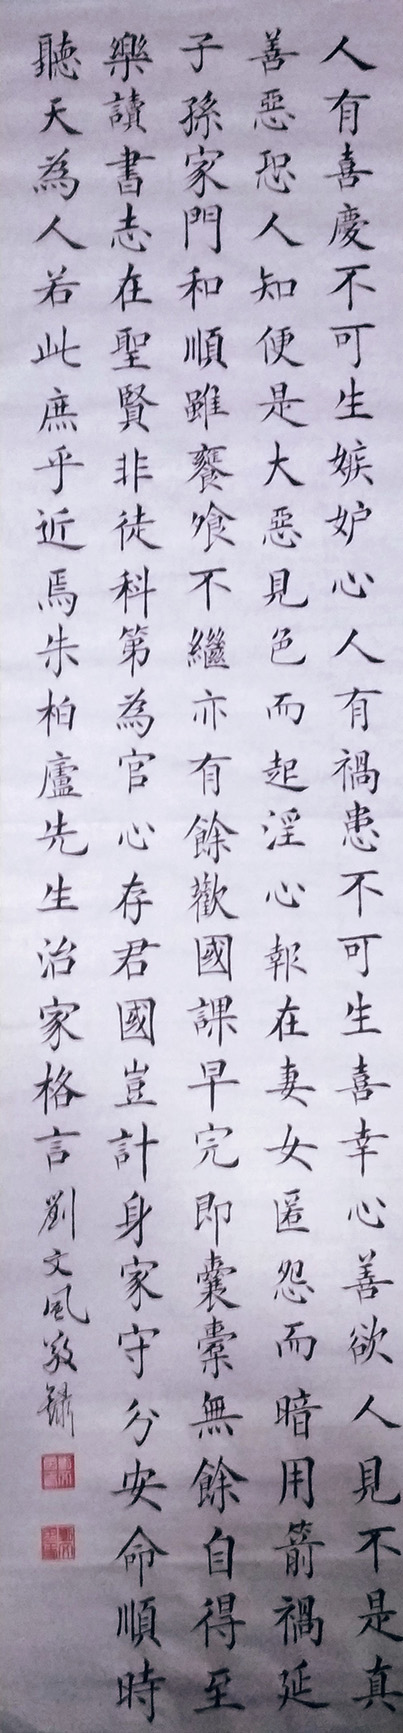 人有喜慶不可生嫉妒心人有禍患不可生喜幸心善欲人見不是真
善惡恐人知便是大惡見色而起淫心報在妻女匿怨而暗用箭禍延
子孫家門和順雖饔飧不繼亦有餘歡國課早完即囊橐無餘自得至
樂讀書志在聖賢非徒科第為官心存君國豈計身家守分安命順時
聽天為人若此庶乎近焉朱柏廬先生治家格言劉文風敬錄